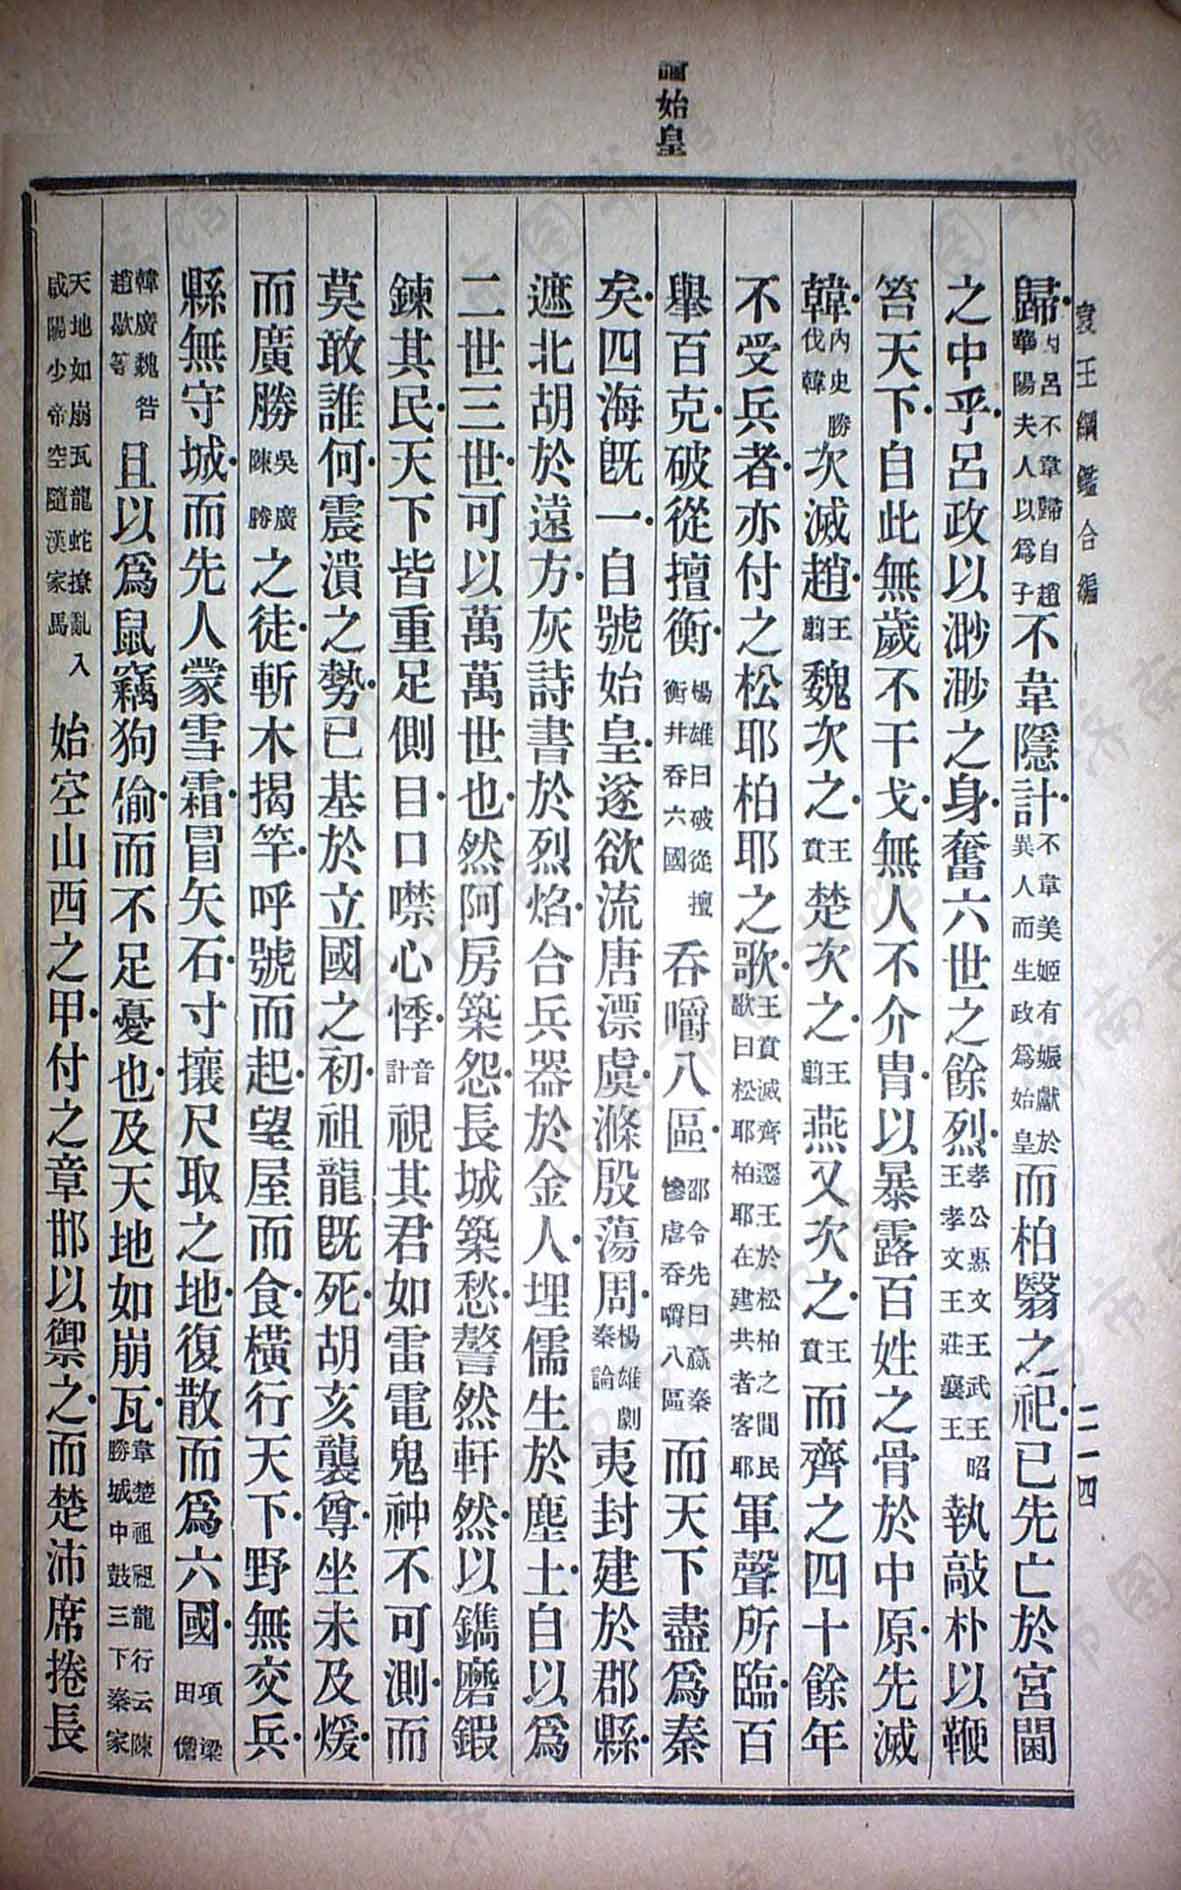 始皇
袁王綱鑑合編
二一四
歸內呂不韋歸自趙華陽夫人以爲子不韋隱計不韋美姬有娠獻於異人而生政爲始皇而柏翳之祀已先亡於宮闈
之中乎呂政以渺渺之身奮六世之餘烈孝公惠文王武王昭王孝文王莊襄王執敲朴以鞭
笞天下自此無歲不干戈無人不介冑以暴露百姓之骨於中原先滅
韓內史勝伐韓次滅趙王翦魏次之王賁楚次之王翦燕又次之王賁而齊之四十餘年
不受兵者亦付之松耶柏耶之歌王賁滅齊遷王於松柏之間民歌曰松耶柏耶在建共者客耶軍聲所臨百
舉百克破從擅衡楊雄曰破從擅衡幷吞六國吞嚼八區邵令先曰嬴秦慘虐吞嚼八區而天下盡爲秦
矣四海旣一自號始皇遂欲流唐漂虞滌殷蕩周楊雄劇秦論夷封建於郡縣
遮北胡於遠方灰詩書於烈焰合兵器於金人埋儒生於塵土自以爲
二世三世可以萬萬世也然阿房築怨長城築愁謷然軒然以鐫磨鍜
鍊其民天下皆重足側目口噤心悸音計視其君如雷電鬼神不可測而
莫敢誰何震潰之勢已基於立國之初祖龍旣死胡亥襲尊坐未及煖
而廣勝吳廣陳勝之徒斬木揭竿呼號而起望屋而食橫行天下野無交兵
縣無守城而先人蒙雪霜冒矢石寸攘尺取之地復散而爲六國項梁田儋
韓廣魏咎趙歇等且以爲鼠竊狗偷而不足憂也及天地如崩瓦韋楚祖祖龍行云陳勝城中鼓三下秦家
天地如崩瓦龍蛇撩亂入咸陽少帝空隨漢家馬始空山西之甲付之章邯以禦之而楚沛席捲長